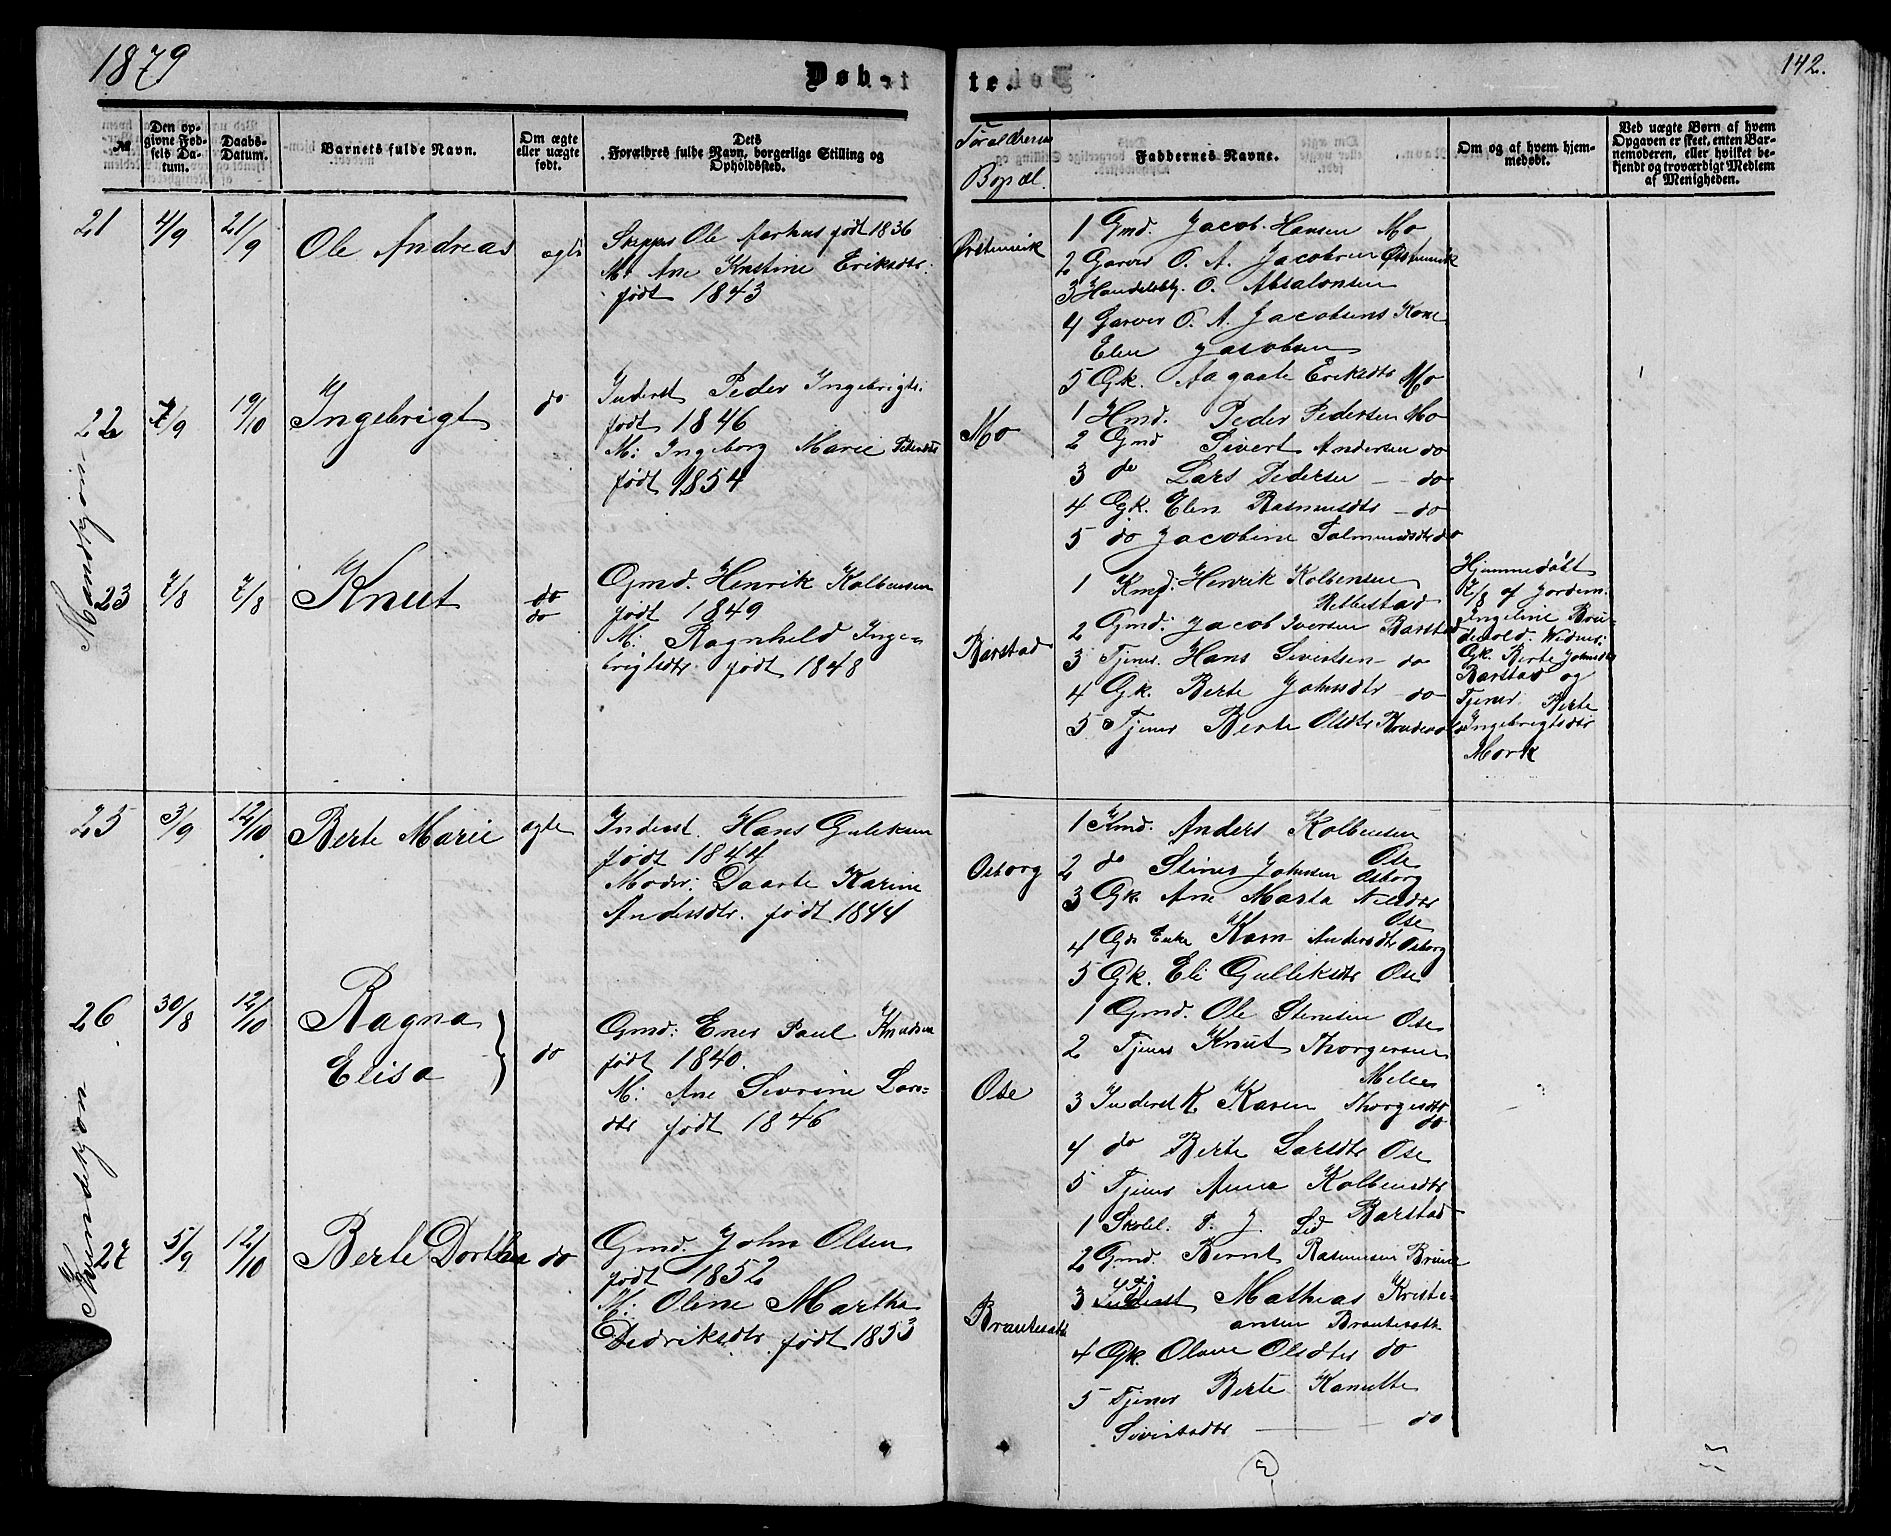 1879
Døbte.
142.
№
Den opgivne Fødsels Datum.
Daabs-Datum.
Barnets fulde Navn.
Om ægte eller uægte født.
Dets Forældres fulde Navn, borgerlige Stilling og Opholdssted.
Forældrenes Bopæl.
Faddernes Navne.
Om og af hvem hjemmedøbt.
Ved uægte Børn af hvem Opgaven er skeet, enten Barnemoderen, eller hvilket bekjendt og troværdigt Medlem af Menigheden.
Mandkjøn
21 4/9 21/9 Ole Andreas ægte
Skipper Ole Aarhus født 1836
M: Ane Kristine Eriksdtr.
født 1843
Ørstenvik
1 Gmd. Jacob Hansen Mo
2 Garver O. A. Jacobsen Ørstenvik
3 Handelsbtj. O. Absalonsen
4 Garver O. A. Jacobsens Kone
Elen Jacobsen
5 Gk. Aagaate Eriksdtr Mo
22 7/9 19/10 Ingebrigt do
Inderst Peder Ingebrigts.
født 1846
M: Ingeborg Marie Pedersdtr
født 1854
Mo
1 Hmd. Peder Pedersen Mo
2 Gmd Sivert Andersen do
3 do Lars Pedersen - do
4 Gk. Elen Rasmusdtr - do
5 do Jacobine Salmundsdtr do
23 7/8 7/8 Knut do
do
Gmd. Henrik Kolbensen
født 1849
M: Ragnhild Inge-
brigtsdtr født 1848
Barstad
1 Kmd. Henrik Kolbensen
Rebbestad
2 Gmd. Jacob Iversen Barstad
3 Tjener. Hans Sivertsen - do
4 Gk. Berte Johnsdtr - do
5 Tjener Berte Olsdtr
Hjemmedøbt
7/8 af Jordem.
Ingeline Brau-
devold. Widnes:
Gk. Berte Johnsdtr
Barstad og
Tjener. Berte
Ingebrigtsdtr
Mork
Kvindekjøn
25 3/9 12/10 Berte Marie ægte
Inderst. Hans Guliksen
født 1844
Moder: Daarte Karine
Andersdtr. født 1844
Osborg
1 Kmd. Anders Kolbensen
Ose
2 do Stiner Johnsen Osborg
3 Gk. Ane Marta Nilsdtr
Ose
4 Gds Enke Karn Andersdtr Osborg
5 Gk. Eli Gulliksdtr Ose
26 30/8 12/10 Ragna
Elisa
do
Gmd: Enes Paul Knudsen
født 1840.
M: Ane Sivrine Lars-
dtr født 1846
Ose
1 Gmd. Ole Stenesen Ose
2 Tjener Knut Thorgersen
Melse
3 Inderst K Karen Thorgersdtr
do
4 do Berte Larsdtr Ose
5 Tjener Anne Kolbensdtr
Barstad
27 5/9 12/10 Berte Dorthea do
Gmd. John Olsen
født 1852
M: Oline Martha
Didriksdtr. født 1853
Brautesæth
1 Skolel. P. J. Lid
2 Gmd. Bernt Rasmusen Brune
3 Inderst Mathias Kristi-
ansen Brautesæth
4 Gk. Olave Olsdtr do
5 Tjener Berte Kanutte
Sivertsdtr - do